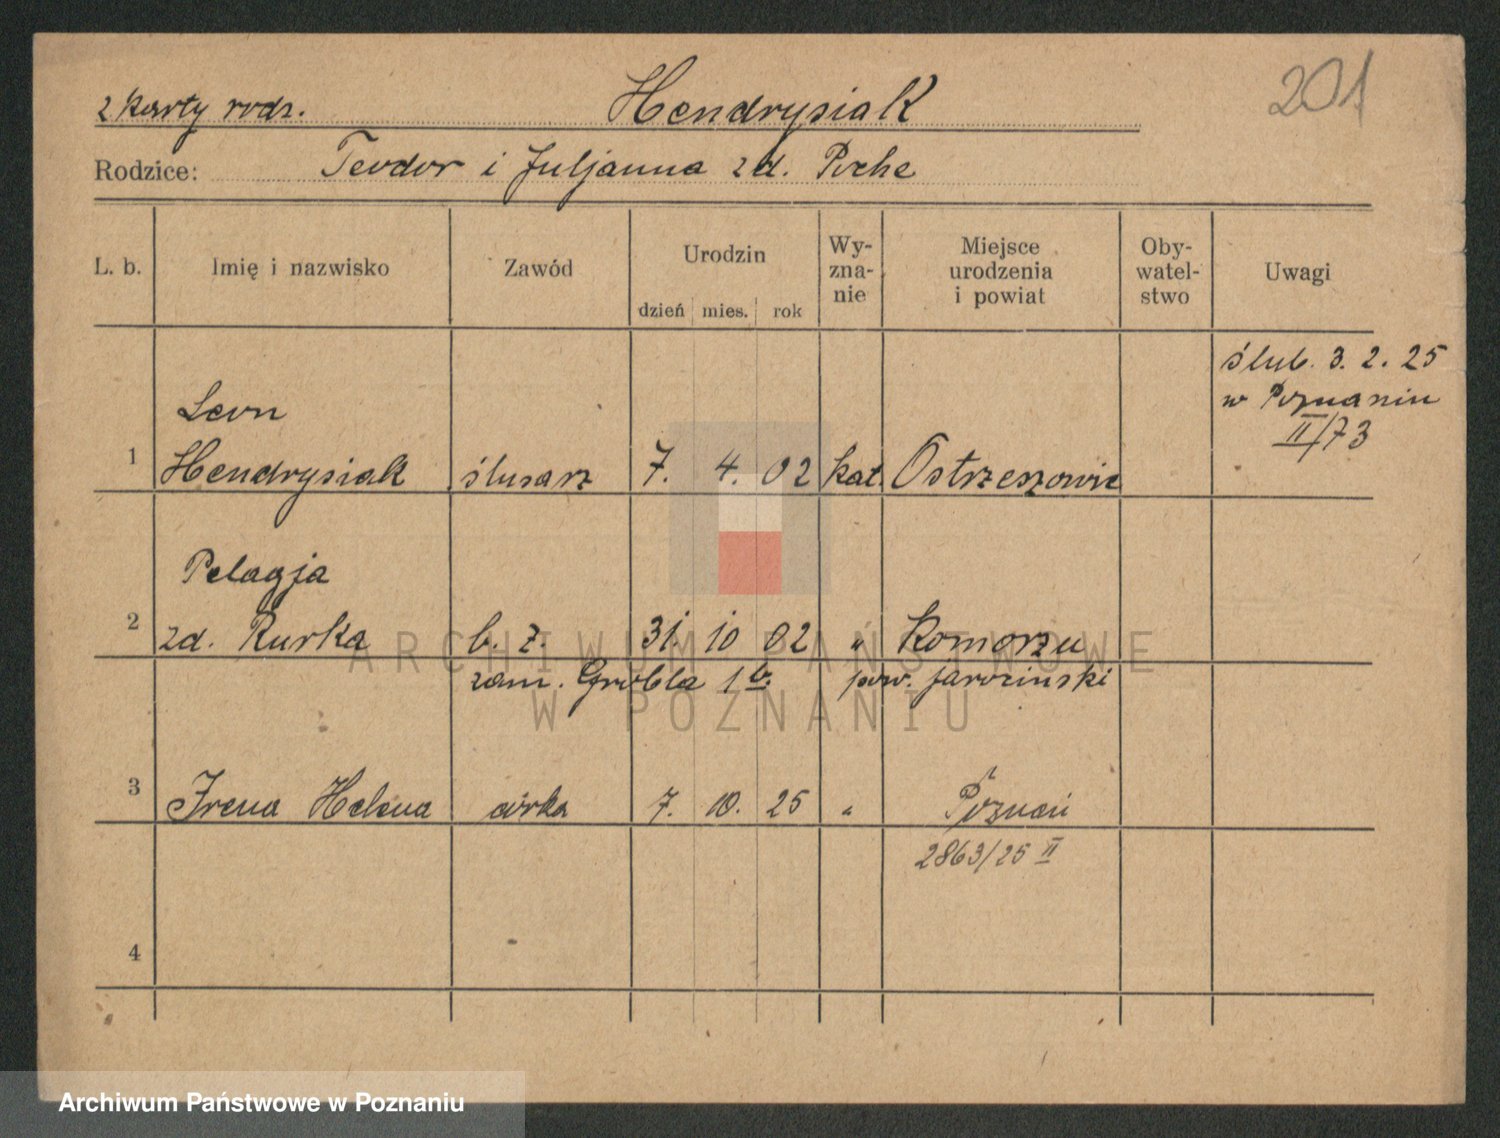 201
z karty rodz. Hendrysiak
Rodzice: Teodor i Juljanna zd. Poche
L. b. Imię i nazwisko Zawód Urodzin Wy-zna-nie Miejsce urodzenia i powiat Oby-watel-stwo Uwagi
dzień mies. rok
ślub. 3. 2. 25
w Poznaniu
II/73
Leon
1 Hendrysiak ślusarz 7. 4. 02 kat. Ostrzeszowie
Pelagja
2 zd. Kurka b. z. 31. 10 02 " Komorzu
zam. Grobla 1b. pow. jarociński
3 Irena Helena córka 7. 10. 25 " Poznań
2863/25 II
4
ARCHIWUM PAŃSTWOWE
W POZNANIU
Archiwum Państwowe w Poznaniu